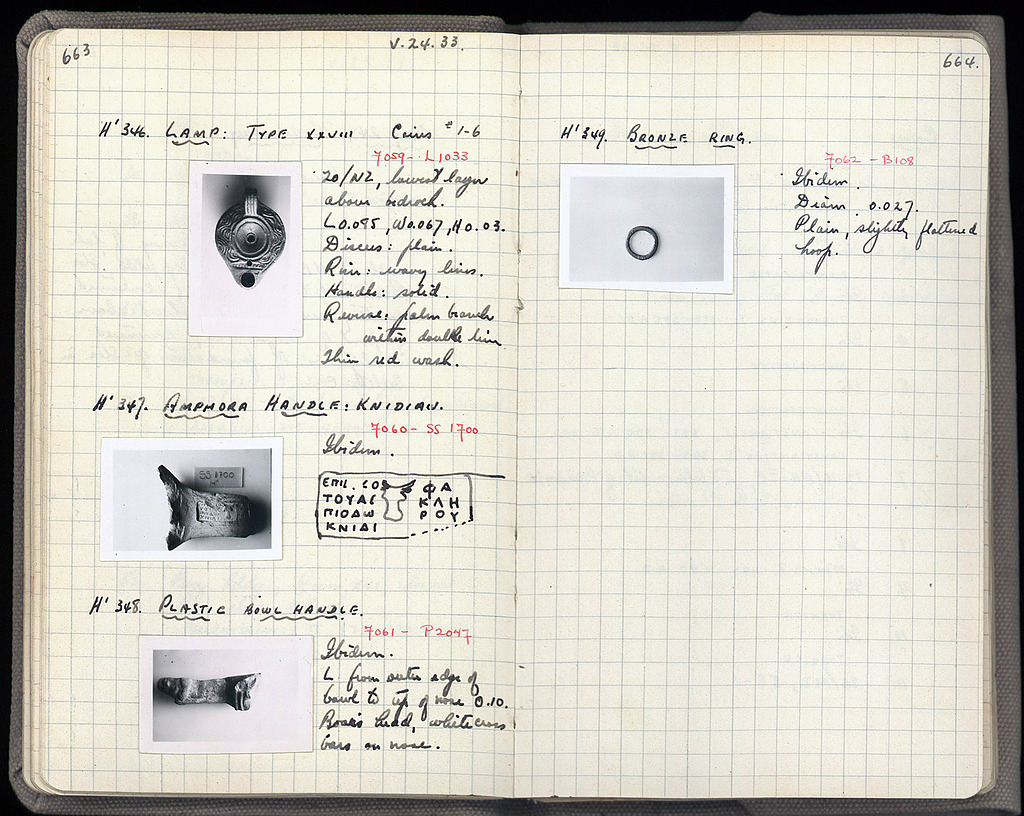 663
V.24.33.
H' 346. LAMP: TYPE XXVIII Coins # 1-6
7059 - L1033
20/ΝΖ, lowest layer
above bedrock.
L 0.095, W 0.067, H 0.03.
Discus: plain.
Rim: wavy lines.
Handle: solid.
Reverse: palm branch
within double line
Thin red wash.
H' 347. AMPHORA HANDLE: KNIDIAN.
7060 - SS 1700
Ibidem.
SS 1700
ΕΠΙ. ΕΟ ΦΑ
ΤΟΥΑΣ ΚΛΗ
ΠΙΟΔΩ ΡΟΥ
ΚΝΙΔΙ
H' 348. PLASTIC BOWL HANDLE.
7061 - P2047
Ibidem.
L from outer edge of
bowl to tip of nose 0.10.
Boar's head, white cross
bars on nose.
664.
H' 349. BRONZE RING.
7062 - B108
Ibidem.
Diam. 0.027.
Plain, slightly flattened
hoop.